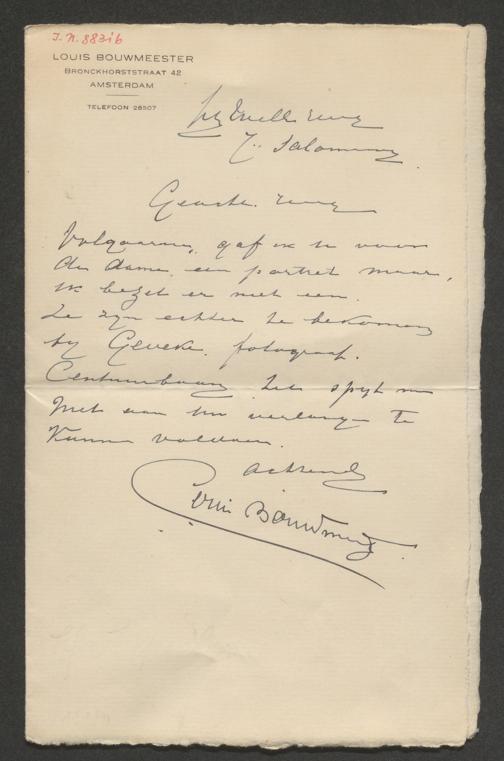 J.N. 883ib
LOUIS BOUWMEESTER
BRONCKHORSTSTRAAT 42
AMSTERDAM
TELEFOON 28507
Salomons
Geachte
Volgaarne, gaf ik u voor
die dame een portret maar,
ik bezit er niet een.
Ze zyn echter te bekomen
by fotograaf.
Ceintuurbaan spyt me
niet aan uw verlangen te
kunnen voldoen.
Achtend
Louis Bouwmeester